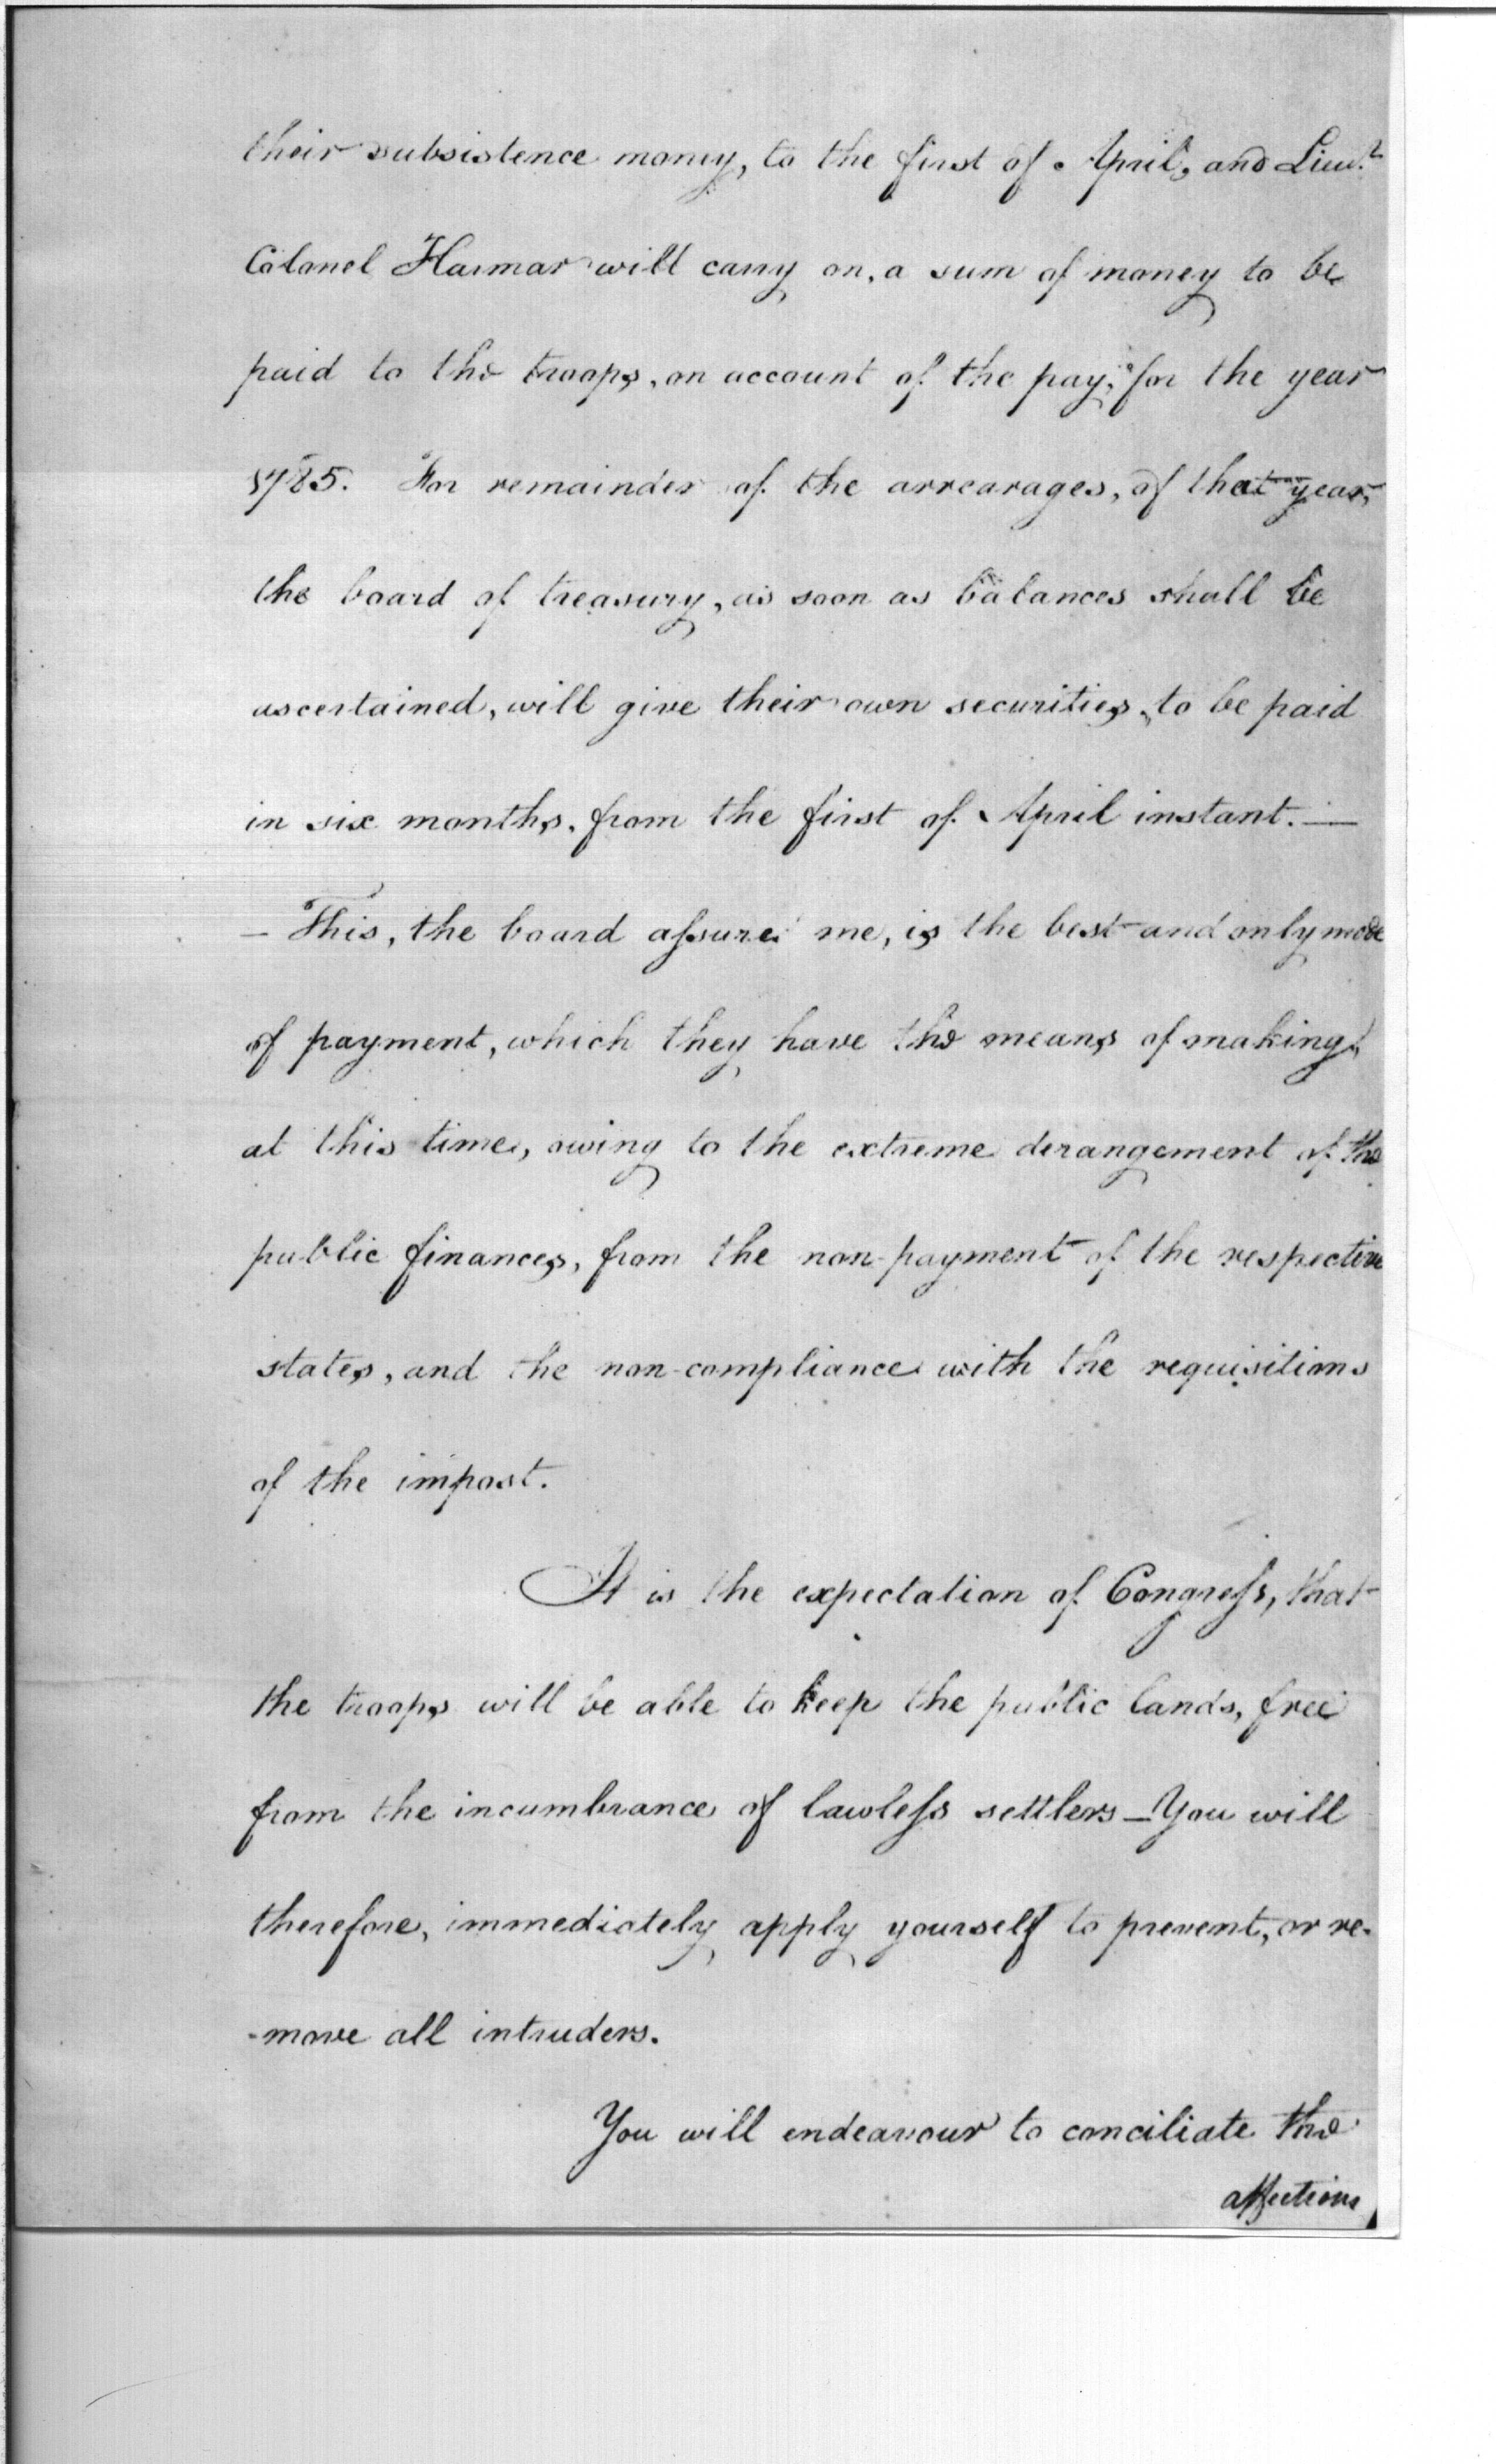 their subsistence money, to the first of April, and Lieut.
Colonel Harmar will carry on, a sum of money to be
paid to the troops, on account of the pay, for the year
1785. For remainder of the arrearages, of that year,
the board of treasury, as soon as balances shall be
ascertained, will give their own securities, to be paid
in six months, from the first of April instant. —
— This, the board assure me, is the best and only mode
of payment, which they have the means of making,
at this time, owing to the extreme derangement of the
public finances, from the non-payment of the respective
states, and the non-compliance with the requisitions
of the impost.
It is the expectation of Congress, that
the troops will be able to keep the public lands, free
from the incumbrance of lawless settlers — You will
therefore, immediately apply yourself to prevent, or re-
-move all intruders.
You will endeavour to conciliate the
affections